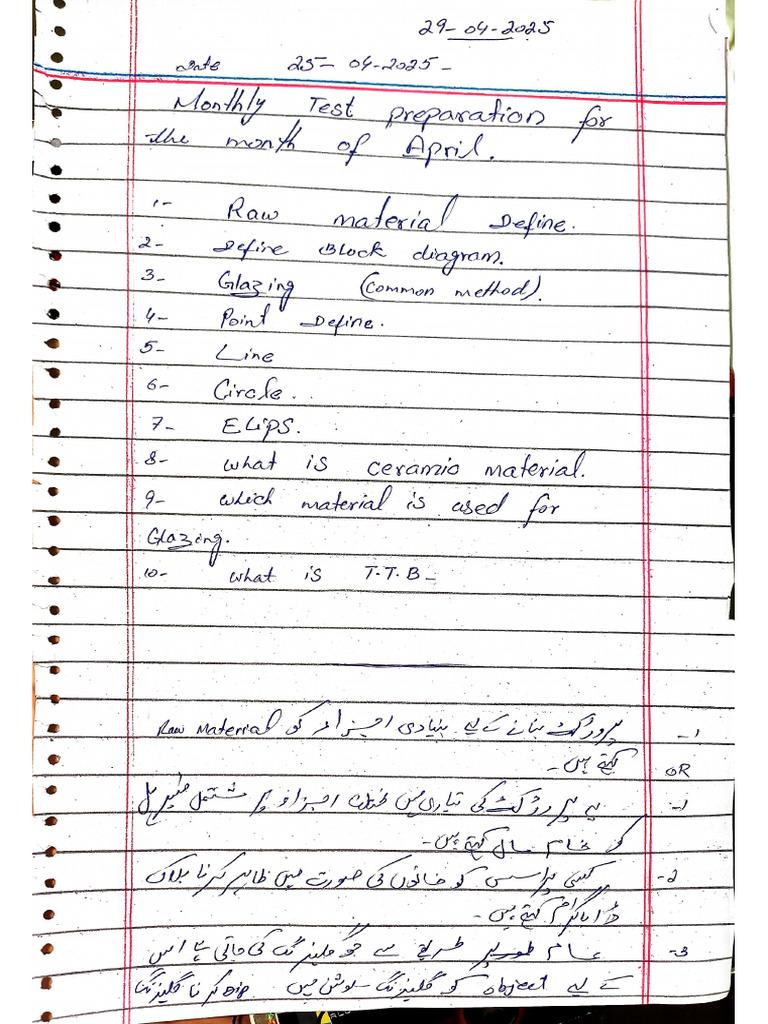 29-04-2025
Date 25-04-2025-
Monthly Test preparation for
the month of April.
1- Raw material Define.
2- Define Block diagram.
3- Glazing (common method).
4- Point Define.
5- Line
6- Circle.
7- Elips.
8- what is ceramic material.
9- which material is used for
Glazing.
10- what is T.T.B-
1- پروڈکٹ بنانے کے لیے بنیادی اجزاء کو Raw Material
کہتے ہیں۔
OR
1- یہ پروڈکٹ کی تیاری میں مختلف اجزاء پر مشتمل مٹیریل
کو خام مال کہتے ہیں۔
2- کسی پراسس کو خانوں کی صورت میں ظاہر کرنا بلاک
ڈایاگرام کہتے ہیں۔
3- عام طور پر طریقے سے جو گلیزنگ کی جاتی ہے اس
کے لیے object کو گلیزنگ سلوشن میں Dip کرنا گلیزنگ